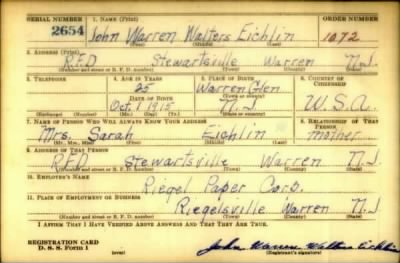 SERIAL NUMBER 1. NAME (Print) ORDER NUMBER
2654 John Warren Walters Eichlin 1072
(First) (Middle) (Last)
2. ADDRESS (Print)
R.F.D. Stewartsville Warren N.J.
(Number and street or R. F. D. number) (Town) (County) (State)
3. TELEPHONE 4. AGE IN YEARS 5. PLACE OF BIRTH 6. COUNTRY OF CITIZENSHIP
25 Warren Glen
DATE OF BIRTH (Town or county)
Oct. 1 1915 N.J. U.S.A.
(Exchange) (Number) (Mo.) (Day) (Yr.) (State or country)
7. NAME OF PERSON WHO WILL ALWAYS KNOW YOUR ADDRESS 8. RELATIONSHIP OF THAT PERSON
Mrs. Sarah Eichlin Mother
(Mr., Mrs., Miss) (First) (Middle) (Last)
9. ADDRESS OF THAT PERSON
R.F.D. Stewartsville Warren N.J.
(Number and street or R. F. D. number) (Town) (County) (State)
10. EMPLOYER'S NAME
Riegel Paper Corp.
11. PLACE OF EMPLOYMENT OR BUSINESS
Riegelsville Warren N.J.
(Number and street or R. F. D. number) (Town) (County) (State)
I AFFIRM THAT I HAVE VERIFIED ABOVE ANSWERS AND THAT THEY ARE TRUE.
REGISTRATION CARD
D. S. S. Form 1 (over) John Warren Walters Eichlin
(Registrant's signature)